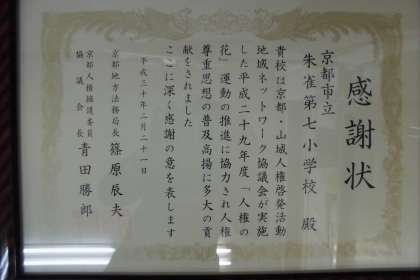 感謝状
京都市立
朱雀第七小学校 殿
貴校は京都・山城人権啓発活動
地域ネットワーク協議会が実施
した平成二十九年度「人権の
花」運動の推進に協力され人権
尊重思想の普及高揚に多大の貢
献をされました
ここに深く感謝の意を表します
平成三十年二月二十一日
京都地方法務局長 篠原辰夫
京都人権擁護委員
協議会長 青田勝郎